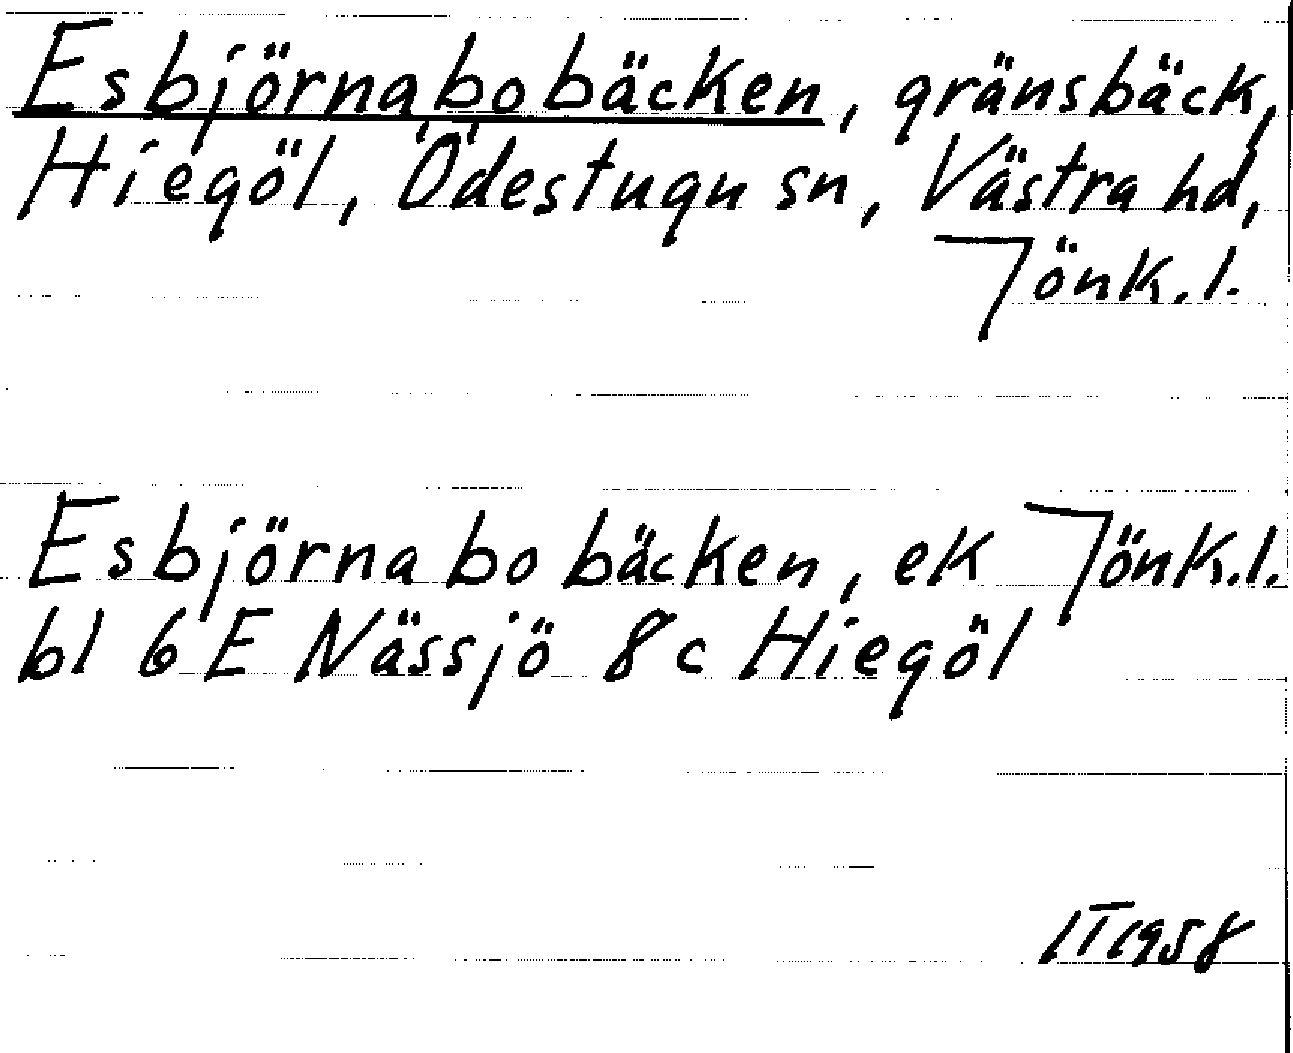 Esbjörnabobäcken, gränsbäck,
Hiegöl, Ödestugu sn, Västra hd,
Jönk.l.
Esbjörnabobäcken, ek Jönk.l.
bl 6 E Nässjö 8 c Hiegöl
IT 1958